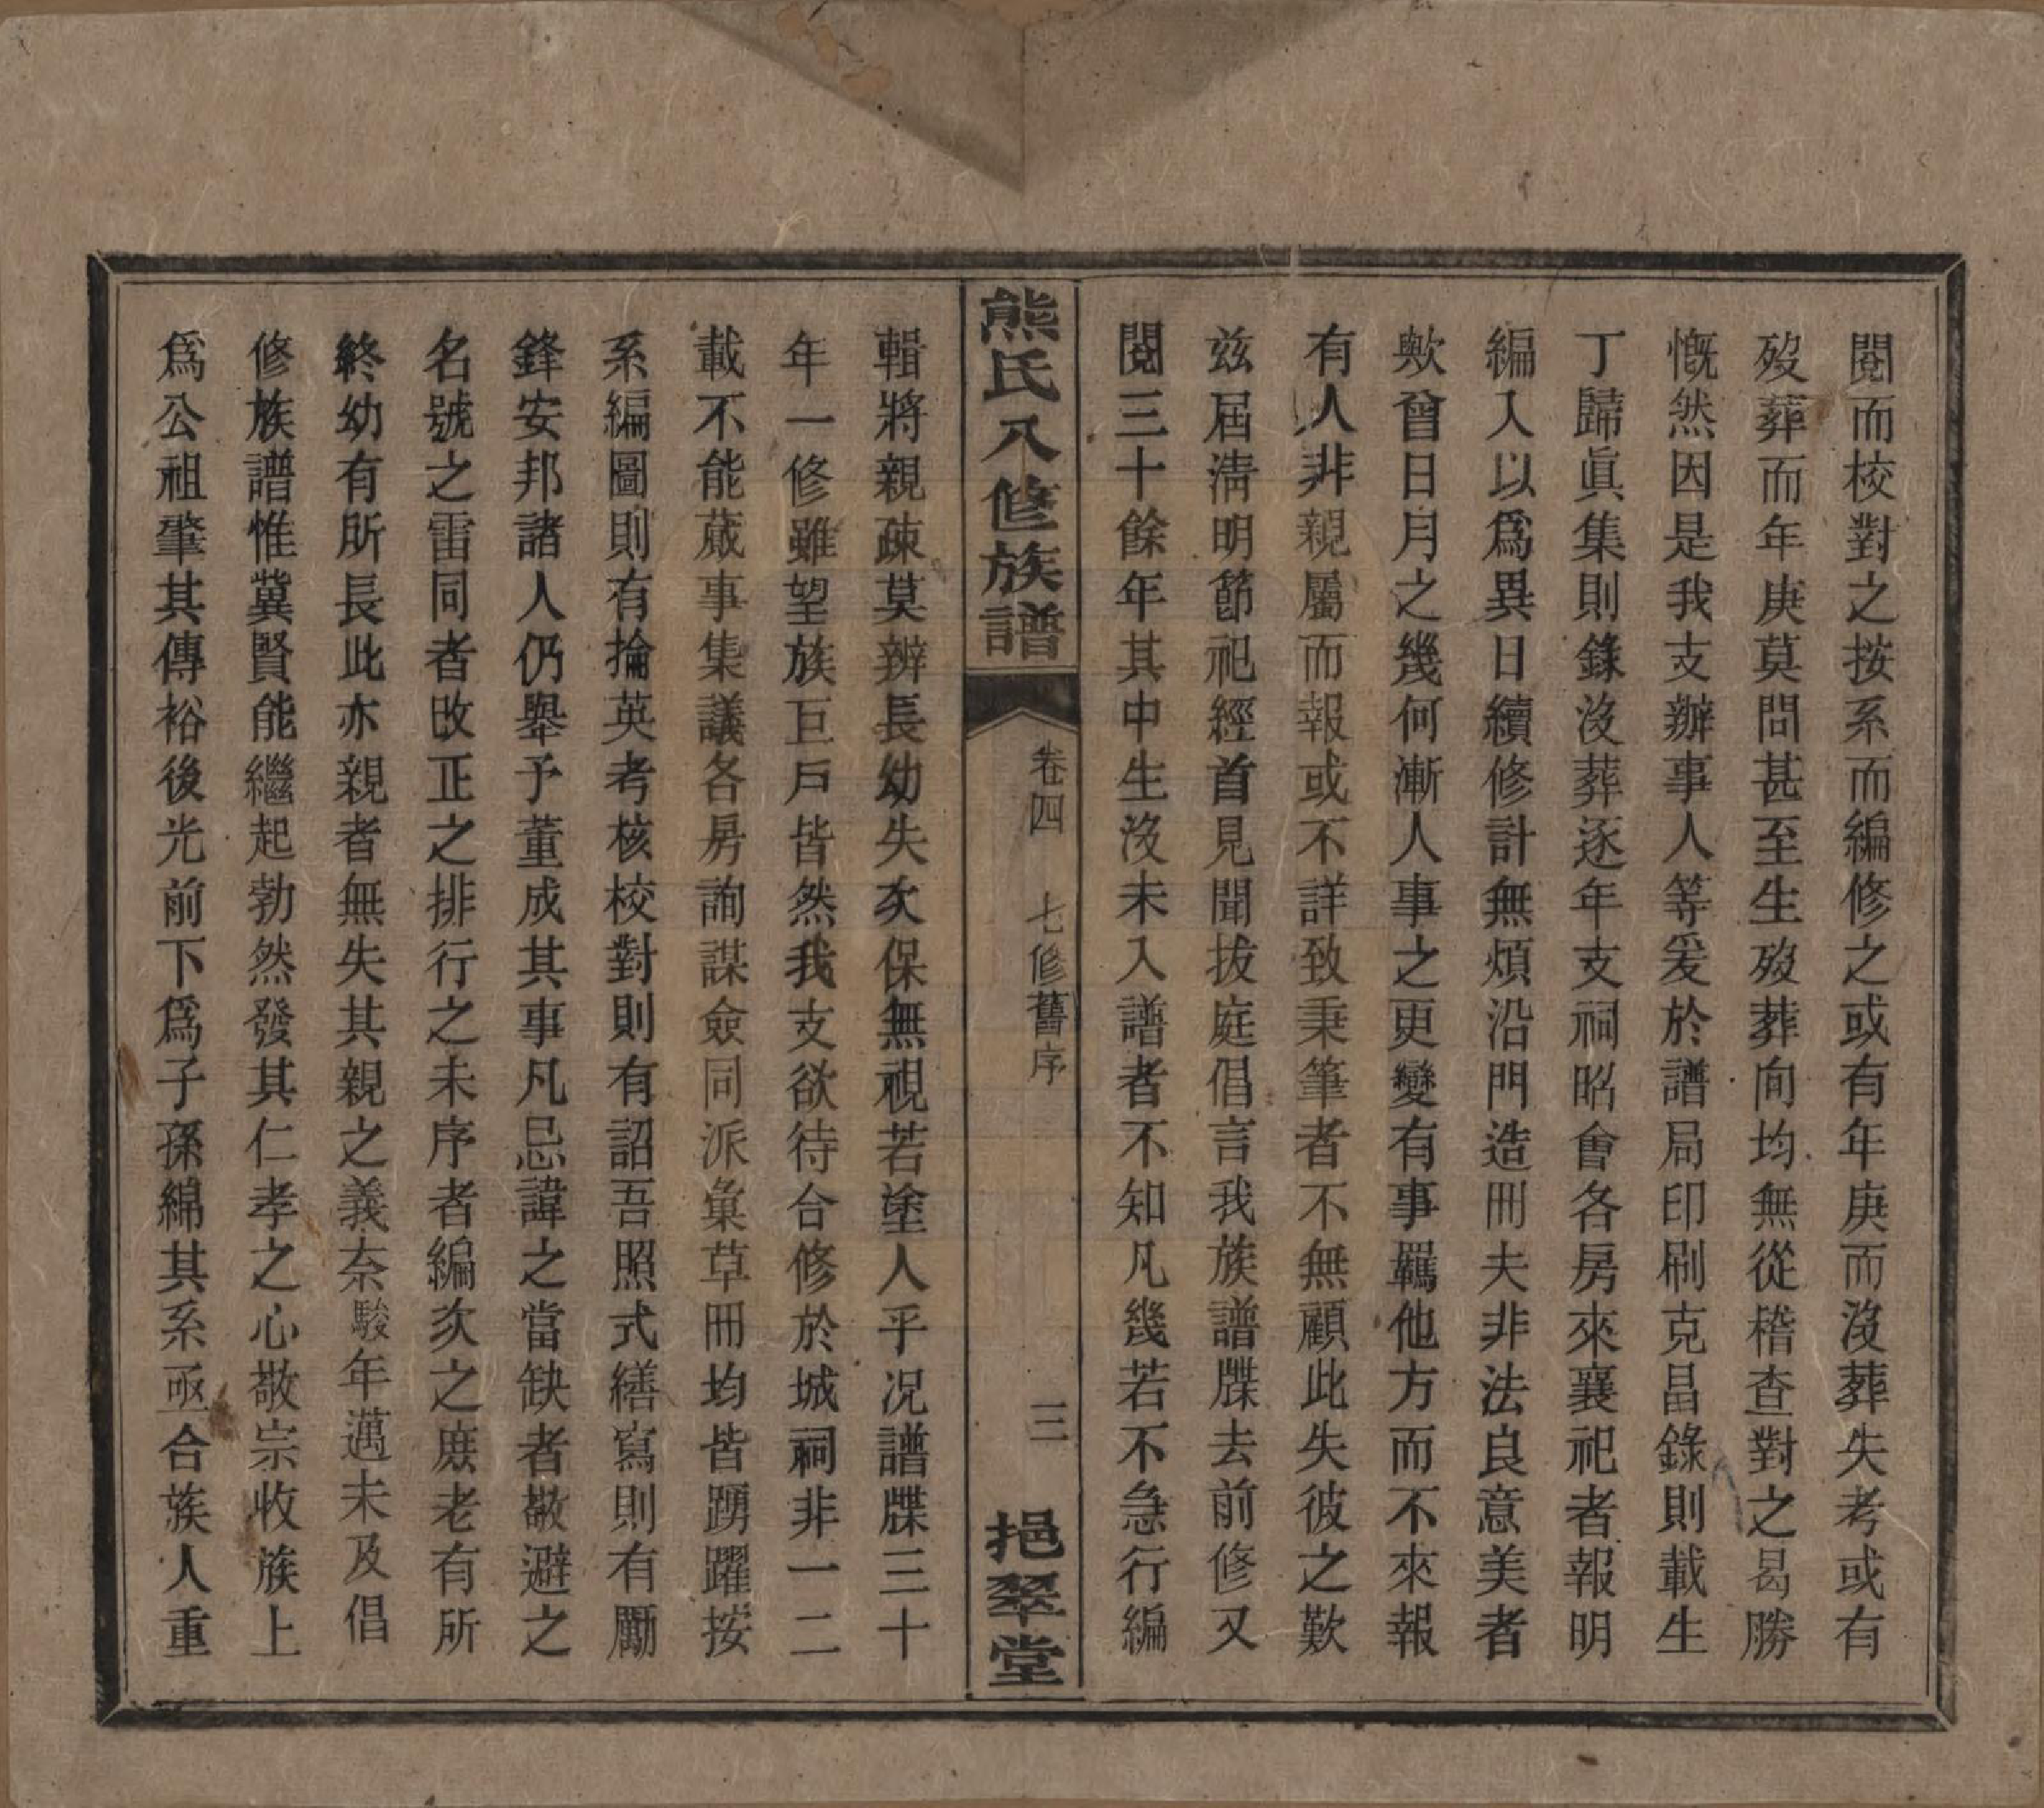 閱而校對之按系而編修之或有年庚而沒葬失考或有
歿葬而年庚莫問甚至生歿葬向均無從稽查對之曷勝
慨然因是我支辦事人等爰於譜局印刷克昌錄則載生
丁歸眞集則錄沒葬逐年支祠昭會各房來襄祀者報明
編入以爲異日續修計無煩沿門造冊夫非法良意美者
歟曾日月之幾何漸人事之更變有事羈他方而不來報
有人非親屬而報或不詳致秉筆者不無顧此失彼之歎
茲屆淸明節祀經首見聞拔庭倡言我族譜牒去前修又
閱三十餘年其中生沒未入譜者不知凡幾若不急行編
熊氏八修族譜
卷四
七修舊序
三
挹翠堂
輯將親疎莫辨長幼失次保無視若塗人乎况譜牒三十
年一修雖望族巨戶皆然我支欲待合修於城祠非一二
載不能蕆事集議各房詢謀僉同派彙草冊均皆踴躍按
系編圖則有掄英考核校對則有詔吾照式繕寫則有勵
鋒安邦諸人仍舉予董成其事凡忌諱之當缺者敬避之
名號之雷同者改正之排行之未序者編次之庶老有所
終幼有所長此亦親者無失其親之義奈駿年邁未及倡
修族譜惟冀賢能繼起勃然發其仁孝之心敬宗收族上
爲公祖肇其傳裕後光前下爲子孫綿其系亟合族人重